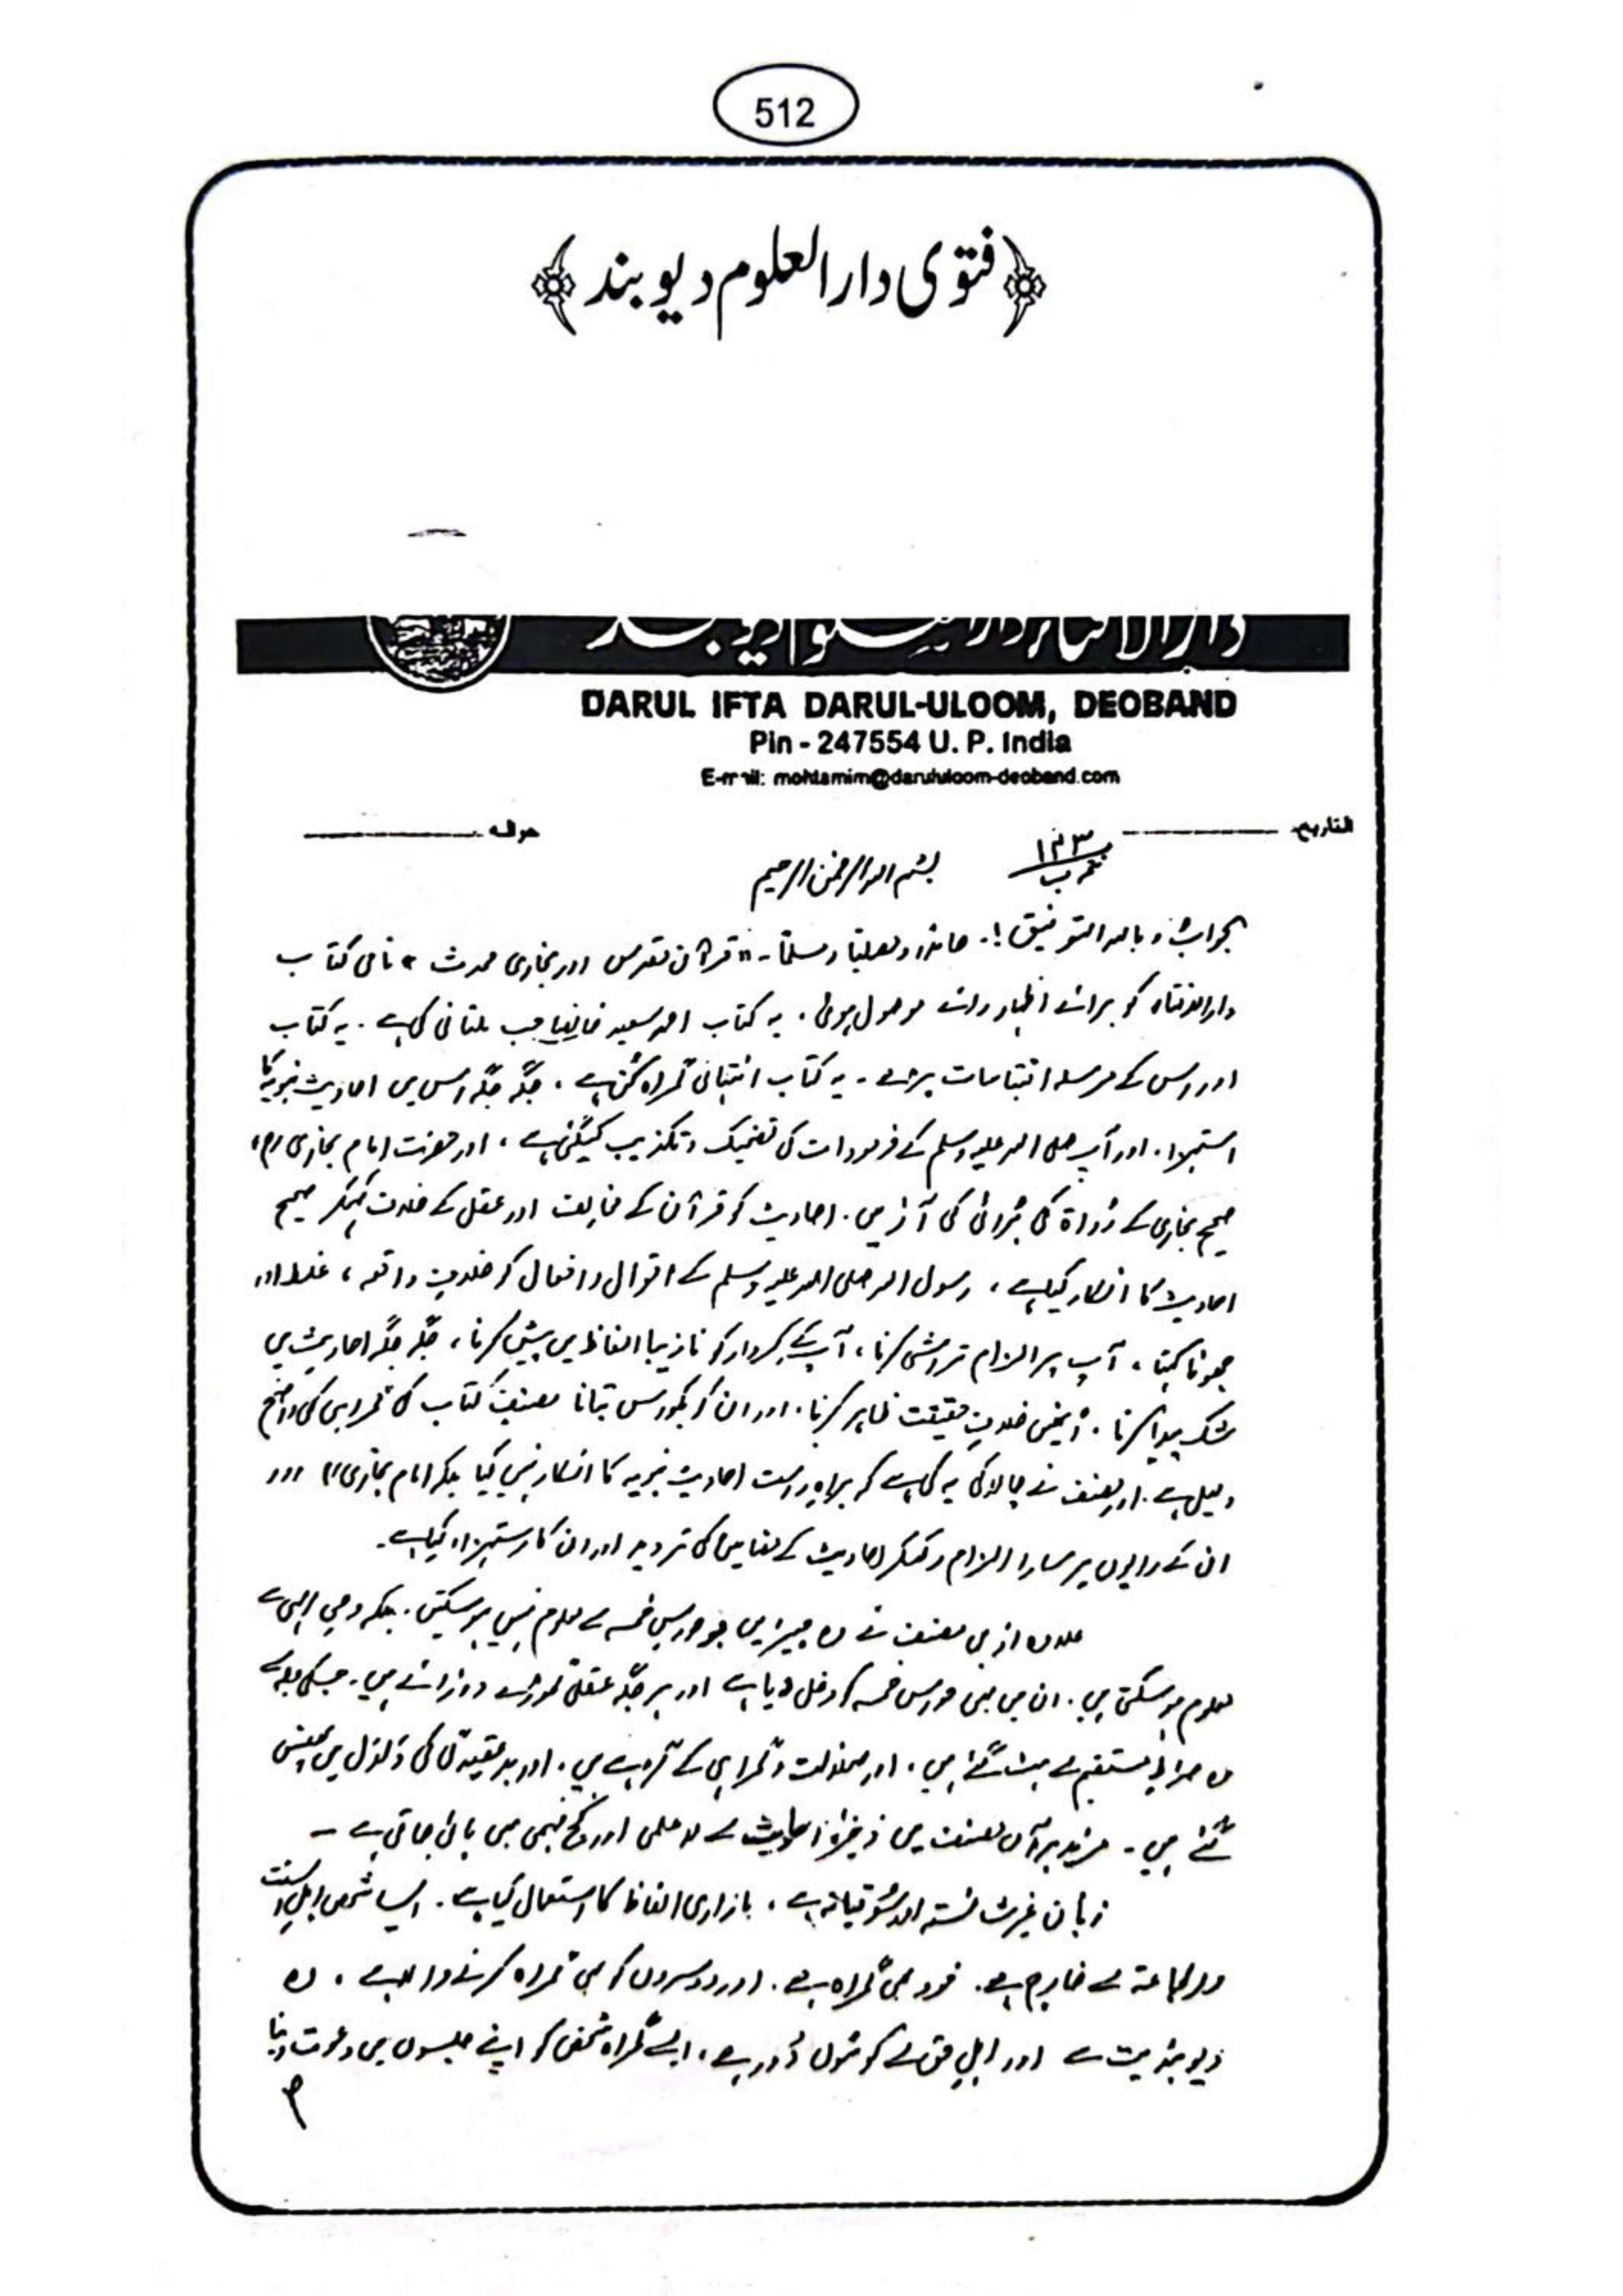 512
﴿فتوی دارالعلوم دیوبند﴾
دارالافتاء دارالعلوم دیوبند
DARUL IFTA DARUL-ULOOM, DEOBAND
Pin - 247554 U. P. India
E-mail: mohtamim@darululoom-deoband.com
التاریخ حوالہ
۱۲۳
ب
بسم اللہ الرحمٰن الرحیم
الجواب وباللہ التوفیق!۔ حامدًا ومصلیًا ومسلمًا۔ "قرآن مقدس اور بخاری محدث" نامی کتاب
دارالافتاء کو برائے اظہار رائے موصول ہوئی۔ یہ کتاب احمد سعید خاں صاحب ملتانی کی ہے۔ یہ کتاب
اور اس کے مرسلہ اقتباسات پڑھے۔ یہ کتاب انتہائی گمراہ کن ہے۔ جگہ جگہ اس میں احادیث نبویہ کا
استہزاء، اور آپ صلی اللہ علیہ وسلم کے فرمودات کی تضحیک و تکذیب کی گئی ہے، اور حضرت امام بخاریؒ،
صحیح بخاری کے رُواۃ کی برائی کی آڑ میں۔ احادیث کو قرآن کے مخالف اور عقل کے خلاف کہکر صحیح
احادیث کا انکار کیا ہے، رسول اللہ صلی اللہ علیہ وسلم کے اقوال و افعال کو خلافِ واقعہ، غلط اور
جھوٹا کہنا، آپ پر الزام تراشی کرنا، آپ کے کردار کو نازیبا الفاظ میں پیش کرنا، جگہ جگہ احادیث میں
شک پیدا کرنا۔ انہیں خلافِ حقیقت ظاہر کرنا۔ اور ان کو بکواس بتانا مصنفِ کتاب کی گمراہی کی واضح
دلیل ہے۔ اور مصنف نے چالاکی یہ کی ہے کہ براہ راست احادیث نبویہ کا انکار نہیں کیا بلکہ امام بخاریؒ اور
ان کے راویوں پر سارا الزام رکھکر احادیث کے مضامین کی تردید اور ان کا استہزاء کیا ہے۔
علاوہ ازیں مصنف نے وہ چیزیں جو حواس خمسہ سے معلوم نہیں ہو سکتیں۔ بلکہ وحی الٰہی سے
معلوم ہو سکتی ہیں۔ ان میں بھی حواس خمسہ کو دخل دیا ہے اور ہر جگہ عقلی گھوڑے دوڑائے ہیں۔ جسکی وجہ سے
وہ صراطِ مستقیم سے ہٹ گئے ہیں۔ اور ضلالت و گمراہی کے گڑھے میں۔ اور بد عقیدگی کی دَلدَل میں پھنس
گئے ہیں۔ مزید برآں مصنف میں ذخیرۂ احادیث سے لا علمی اور کج فہمی بھی پائی جاتی ہے۔
زبان غیر شائستہ اور سوقیانہ ہے۔ بازاری الفاظ کا استعمال کیا ہے۔ ایسا شخص اہلِ السنت
والجماعۃ سے خارج ہے۔ خود بھی گمراہ ہے۔ اور دوسروں کو بھی گمراہ کرنے والا ہے۔ وہ
دیوبندیت سے اور اہلِ حق سے کوسوں دُور ہے۔ ایسے گمراہ شخص کو اپنے جلسوں میں دعوت دینا